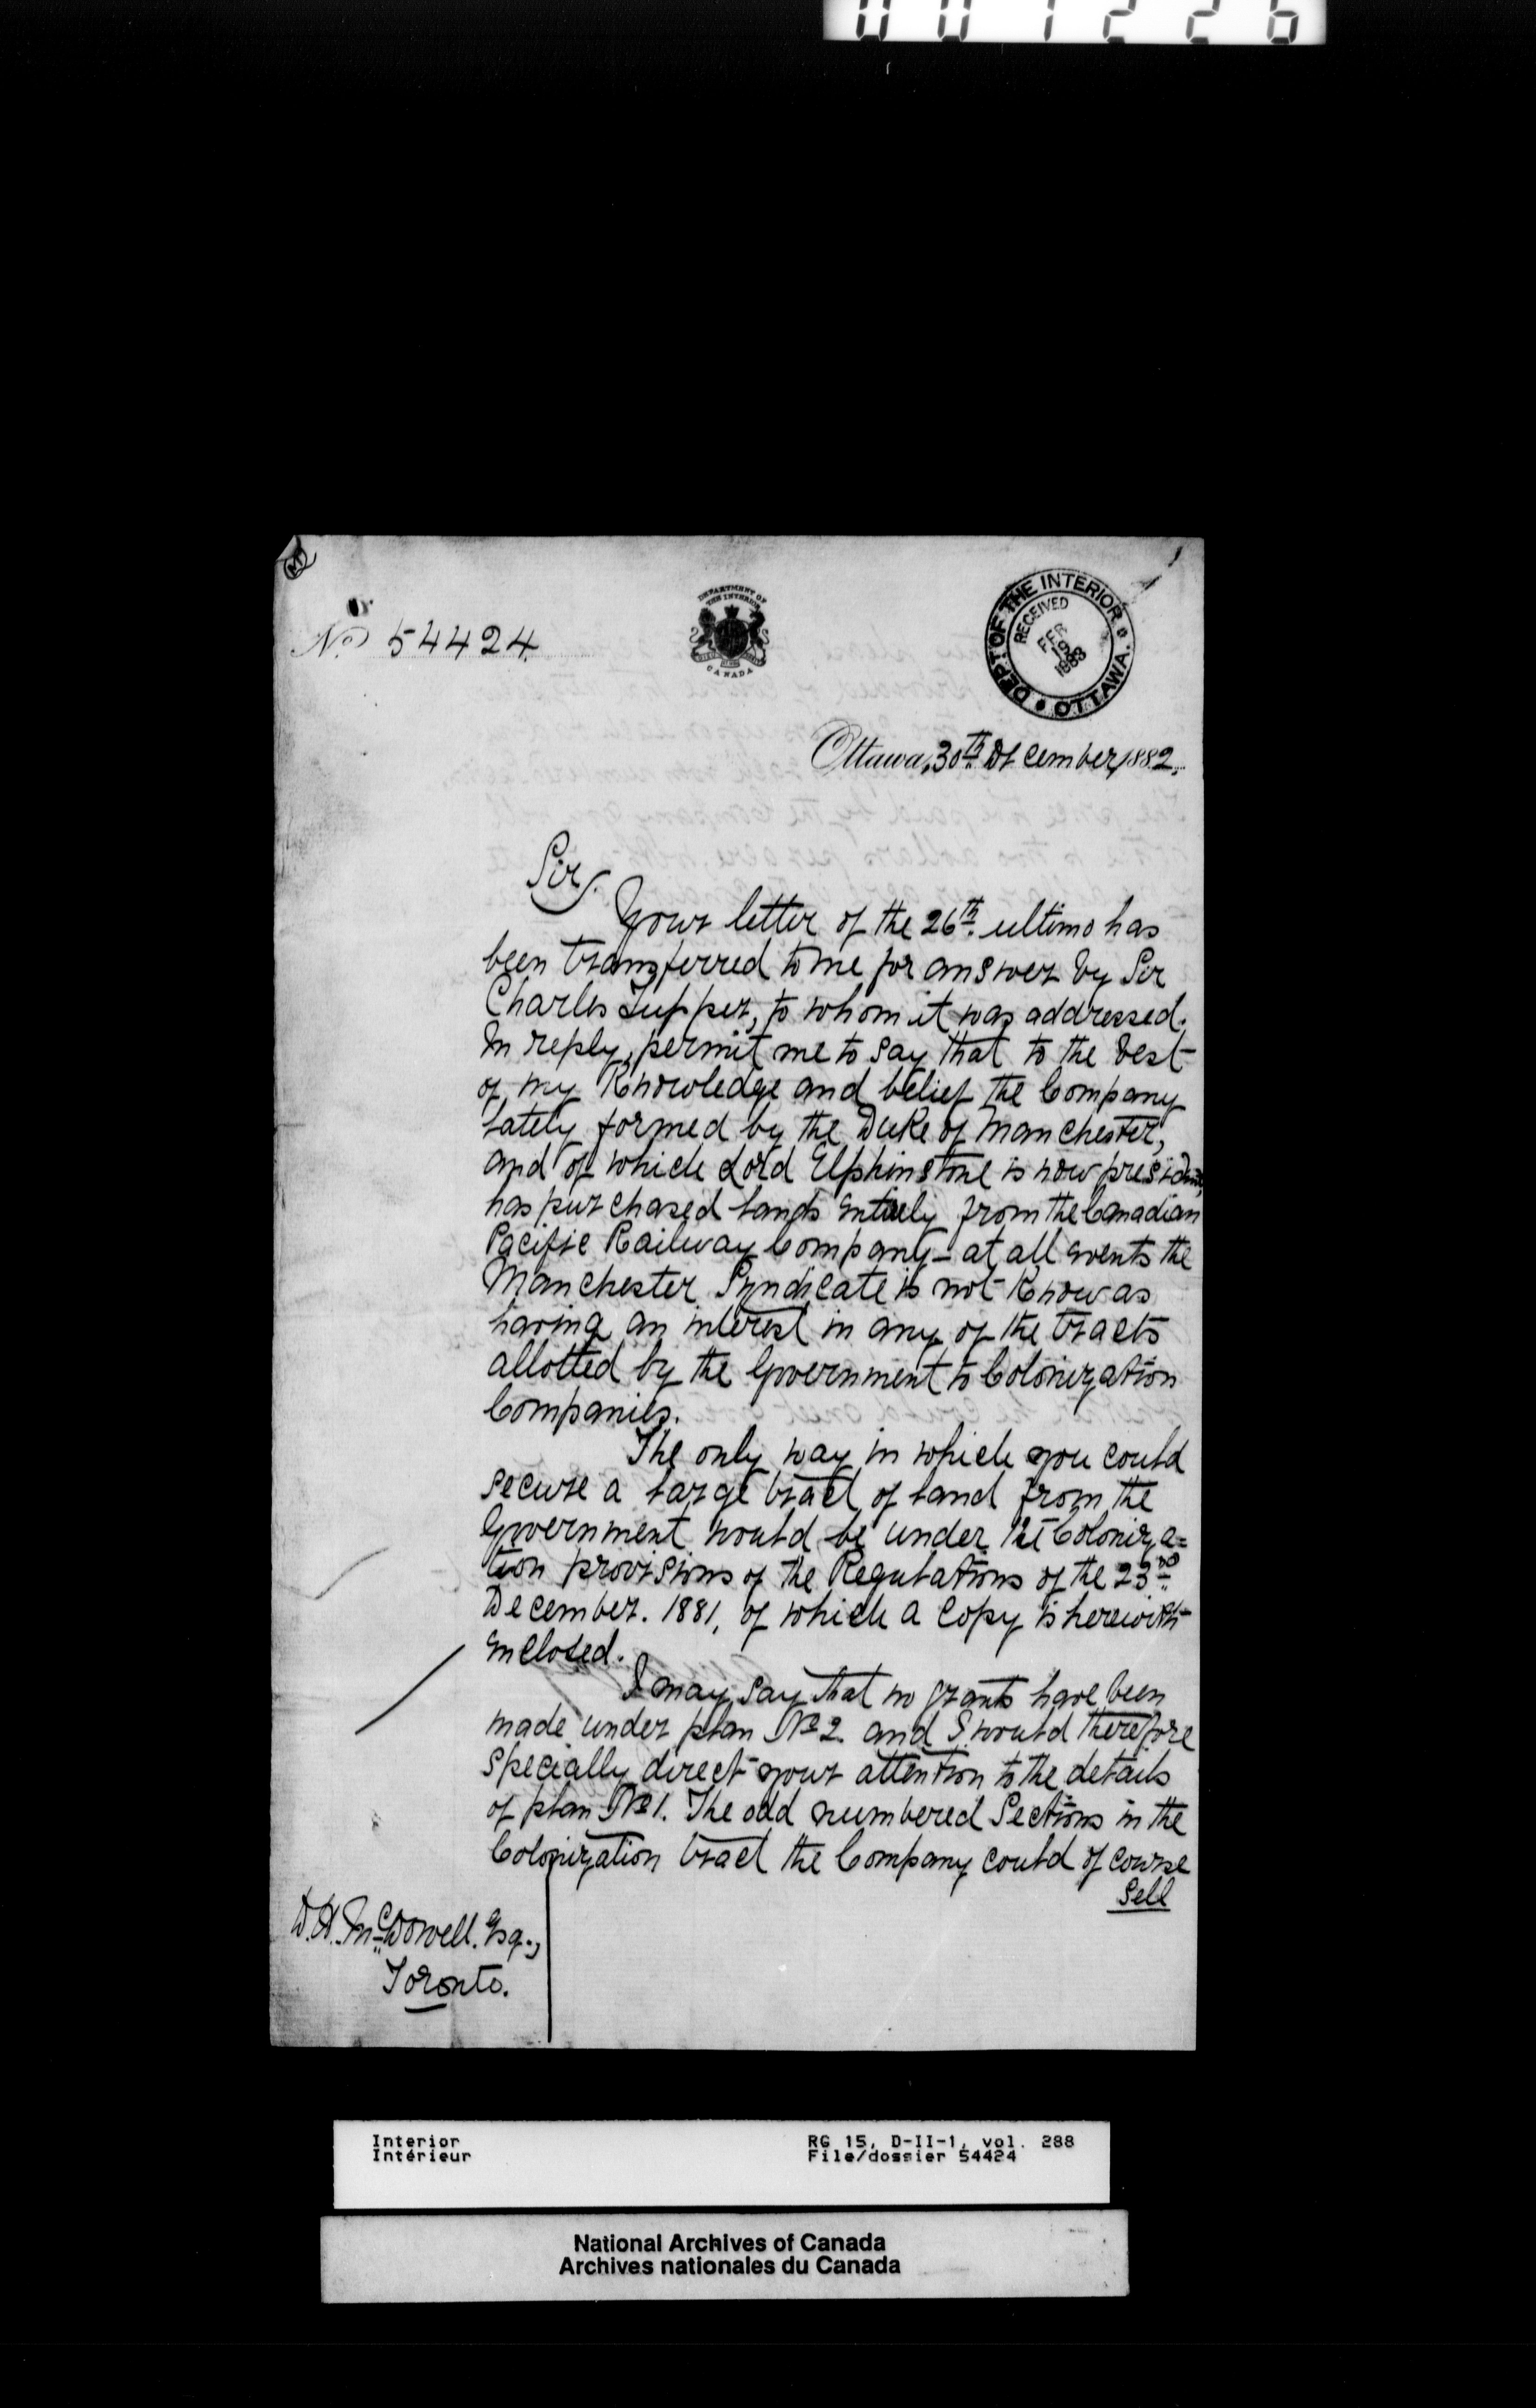 001226
No 54424.
DEPARTMENT OF
THE INTERIOR
CANADA
DEPT OF THE INTERIOR
RECEIVED
FEB
19
1883
OTTAWA.
Ottawa, 30th December, 1882.
Sir,
Your letter of the 26th ultimo has
been transferred to me for answer by Sir
Charles Tupper, to whom it was addressed.
In reply, permit me to say that to the best
of my Knowledge and belief the Company
lately formed by the Duke of Manchester,
and of which Lord Elphinstone is now president,
has purchased lands entirely from the Canadian
Pacific Railway Company - at all events the
Manchester Syndicate is not Know as
having an interest in any of the tracts
allotted by the Government to Colonization
Companies.
The only way in which you could
secure a large tract of land from the
Government would be under the Coloniza=
tion provisions of the Regulations of the 23rd
December. 1881, of which a Copy is herewith
enclosed.
I may say that no grants have been
made under plan No 2. and I would therefore
specially direct your attention to the details
of plan No 1. The odd numbered Sections in the
Colonization tract the Company could of course
Sell
D.H. McDowell. Esq.,
Toronto.
Interior RG 15, D-II-1, vol. 288
Intérieur File/dossier 54424
National Archives of Canada
Archives nationales du Canada